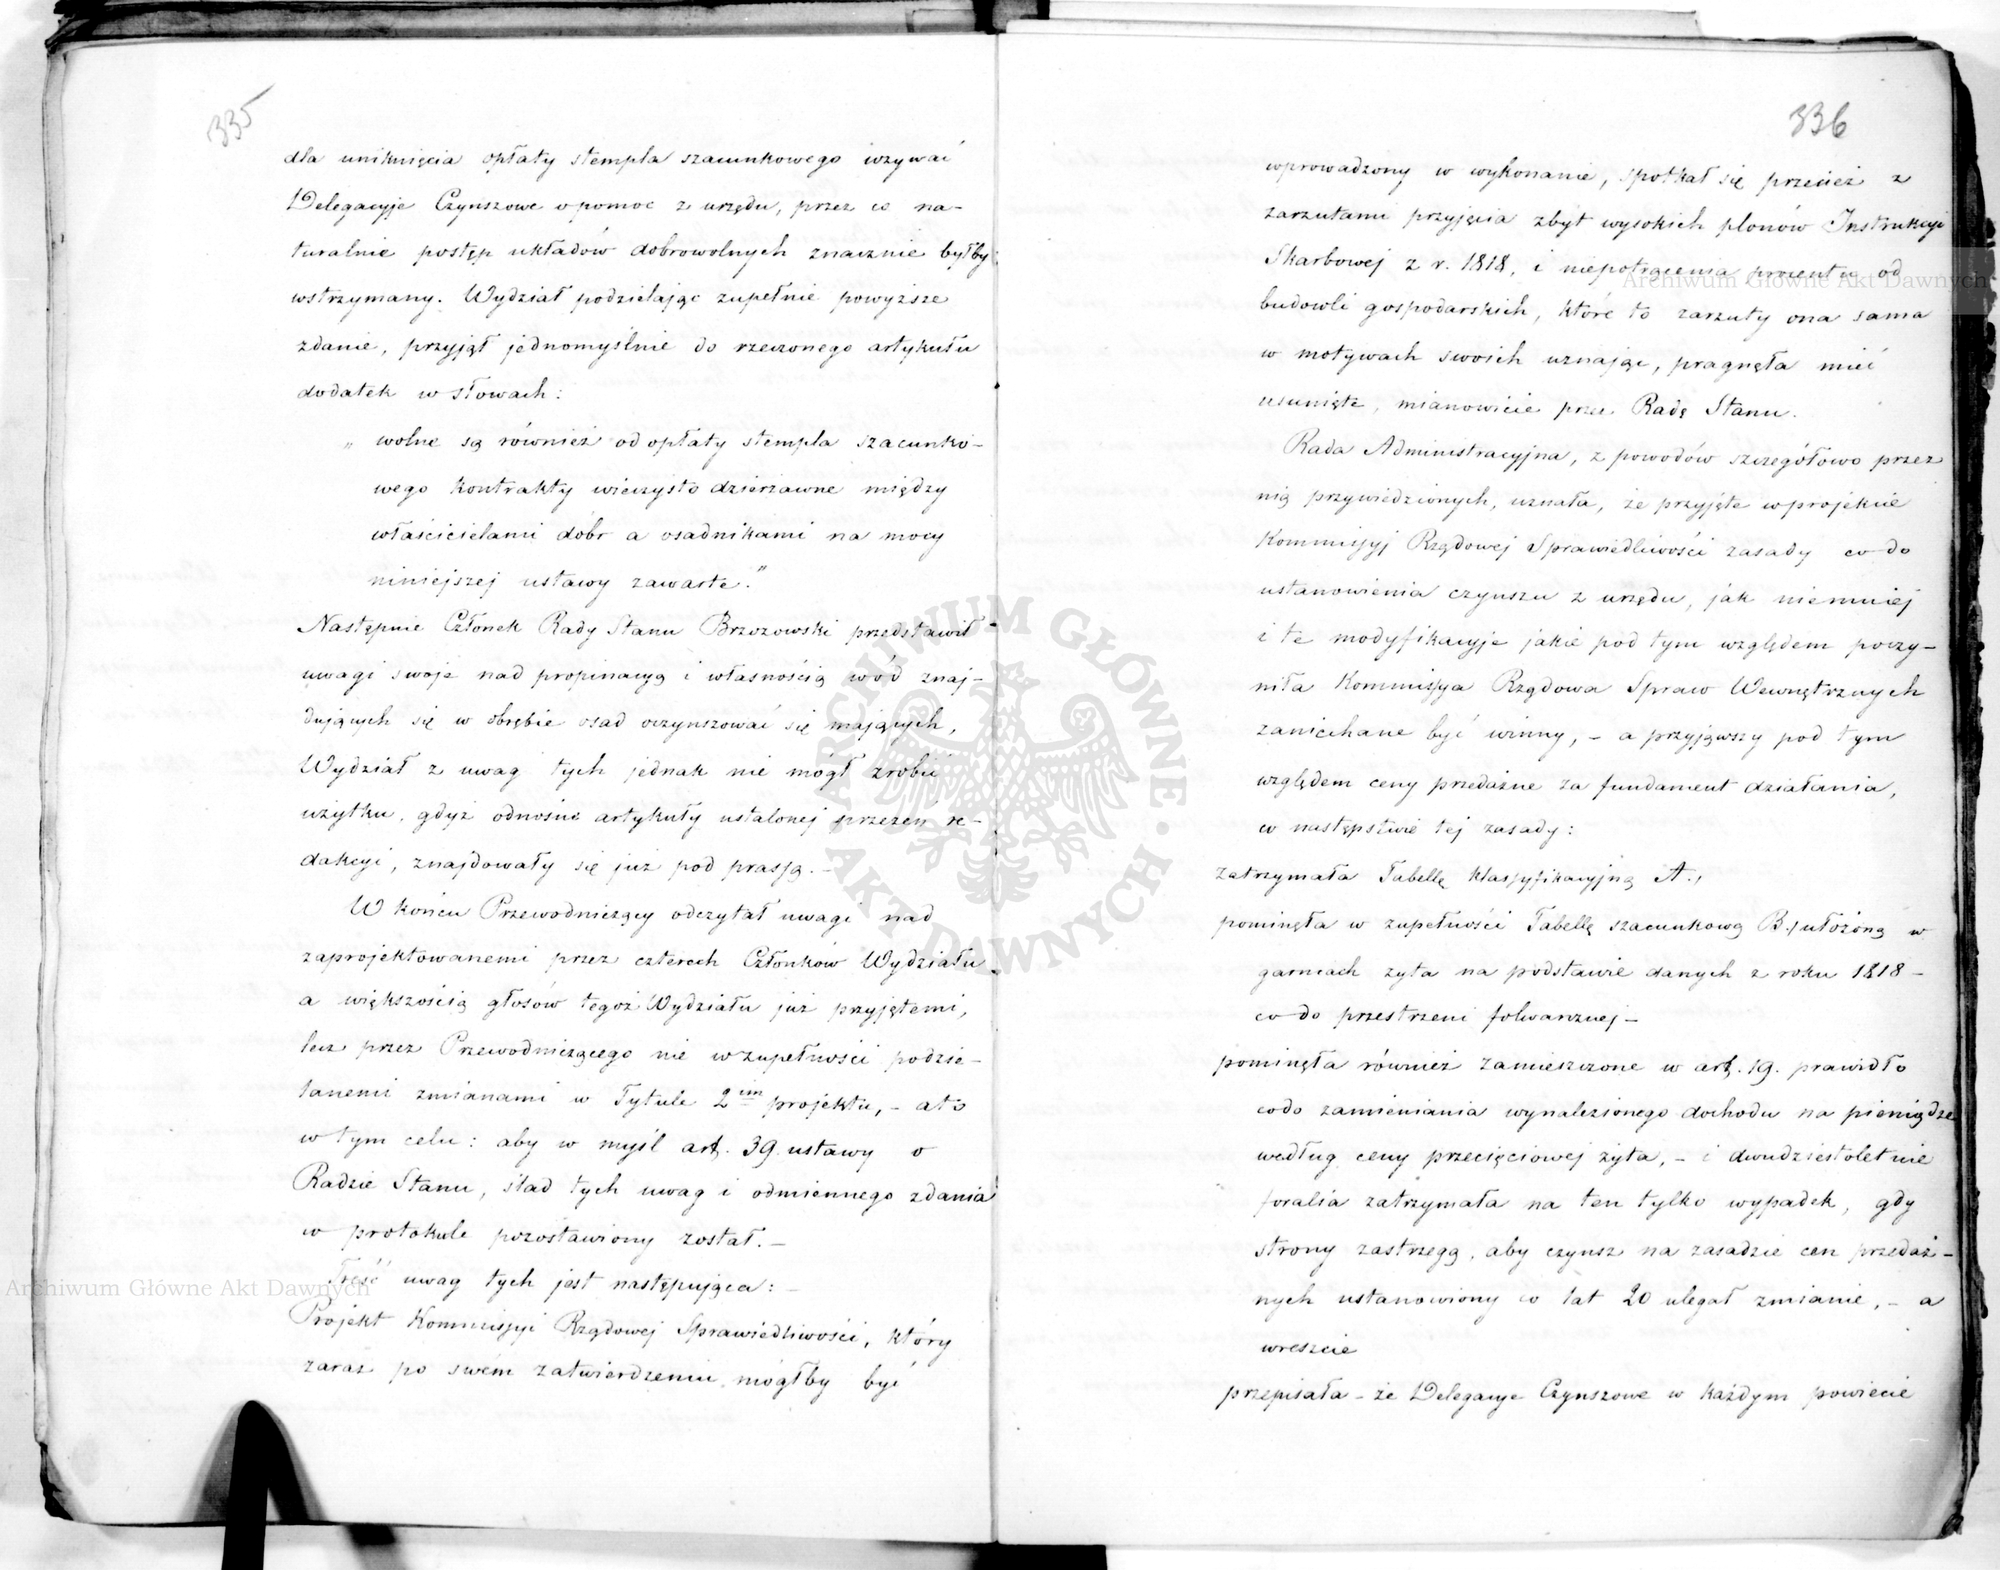 335
dla uniknięcia opłaty stempla szacunkowego wzywać
Delegacyje Czynszowe o pomoc z urzędu, przez co na-
turalnie postęp układów dobrowolnych znacznie byłby
wstrzymany. Wydział podzielając zupełnie powyższe
zdanie, przyjął jednomyślnie do rzeczonego artykułu
dodatek w słowach:
„ wolne są również od opłaty stempla szacunko-
wego kontrakty wieczysto dzierżawne między
właścicielami dóbr a osadnikami na mocy
niniejszej ustawy zawarte."
Następnie Członek Rady Stanu Brzozowski przedstawił
uwagi swoje nad propinacyą i własnością wód znaj-
dujących się w obrębie osad oczynszować się mających,
Wydział z uwag tych jednak nie mógł zrobić
użytku, gdyż odnośne artykuły ustalonej przezeń re-
dakcyi, znajdowały się już pod prassą. -
W końcu Przewodniczący odczytał uwagi nad
zaprojektowanemi przez czterech Członków Wydziału
a większością głosów tegoż Wydziału już przyjętemi,
lecz przez Przewodniczącego nie w zupełności podzie-
lanemi zmianami w Tytule 2im projektu, - a to
w tym celu: aby w myśl art. 39 ustawy o
Radzie Stanu, ślad tych uwag i odmiennego zdania
w protokule pozostawiony został. -
Treść uwag tych jest następująca: -
Projekt Kommissyi Rządowej Sprawiedliwości, który
zaraz po swém zatwierdzeniu mógłby być
336
wprowadzony w wykonanie, spotkał się przecież z
zarzutami przyjęcia zbyt wysokich plonów Instrukcyi
Skarbowej z r. 1818, i niepotrącenia procentu od
budowli gospodarskich, które to zarzuty ona sama
w motywach swoich uznając, pragnęła mieć
usunięte, mianowicie przez Radę Stanu.
Rada Administracyjna, z powodów szczegółowo przez
nią przywiedzionych, uznała, że przyjęte w projekcie
Kommissyj Rządowej Sprawiedliwości zasady co do
ustanowienia czynszu z urzędu, jak niemniej
i te modyfikacyje jakie pod tym względem poczy-
niła Kommissya Rządowa Spraw Wewnętrznych
zaniechane być winny, - a przyjąwszy pod tym
względem ceny przedażne za fundament działania,
w następstwie tej zasady:
zatrzymała Tabellę klassyfikacyjną A.,
pominęła w zupełności Tabellę szacunkową B./ ułożoną w
garncach żyta na podstawie danych z roku 1818 -
co do przestrzeni folwarcznej -
pominęła również zamieszczone w art. 19. prawidło
co do zamieniania wynalezionego dochodu na pieniądze
według ceny przecięciowej żyta, - i dwudziestoletnie
foralia zatrzymała na ten tylko wypadek, gdy
strony zastrzegą, aby czynsz na zasadzie cen przedaż-
nych ustanowiony co lat 20 ulegał zmianie, - a
wreszcie
przepisała - że Delegacye Czynszowe w każdym powiecie
ARCHIWUM GŁÓWNE AKT DAWNYCH
Archiwum Główne Akt Dawnych
Archiwum Główne Akt Dawnych